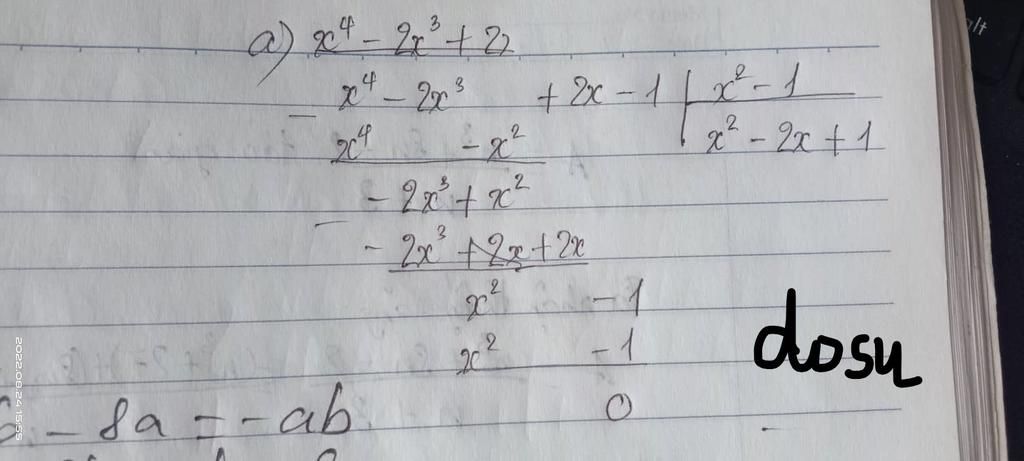 a) x⁴ - 2x³ + 2
x⁴ - 2x³ + 2x - 1 | x² - 1
- x⁴ - x² | x² - 2x + 1
- 2x³ + x²
- - 2x³ + 2x
x² - 1
x² - 1
0
- 8a = - ab
dosu
alt
2022.08.24 15:55